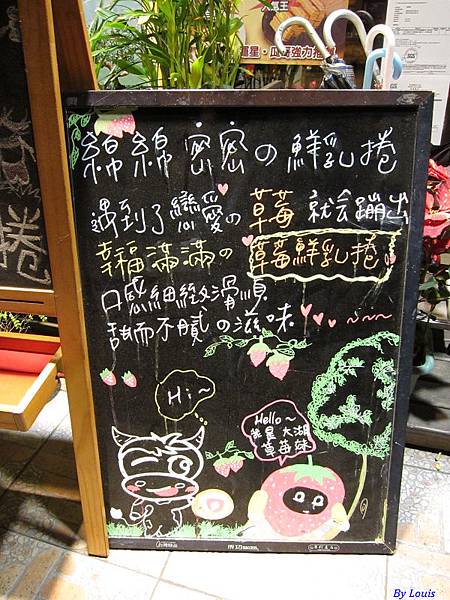 綿綿密密の鮮乳捲
遇到了戀愛の草莓 就会蹦出
幸福滿滿の草莓鮮乳捲
口感細緻滑順
甜而不膩の滋味 ~~~
Hi~
Hello~
我是大湖
草莓妹
捲
By Louis